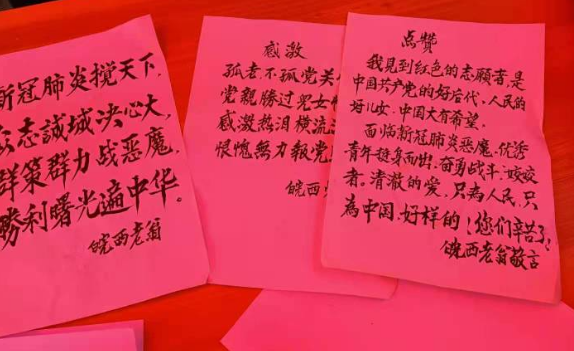 新冠肺炎搅天下,
众志誠城决心大,
群策群力战恶魔,
勝利曙光遍中华。
皖西老翁
感激
孤老不孤党关
党親勝过儿女
感激热泪横流
恨愧無力報党
皖西
点赞
我見到红色的志願者,是
中国共产党的好后代、人民的
好儿女。中国大有希望。
面临新冠肺炎恶魔,优诱
青年挺身而出,奋勇战斗,
者。清澈的爱,只為人民,只
為中国。好样的!您们辛苦了
皖西老翁敬言